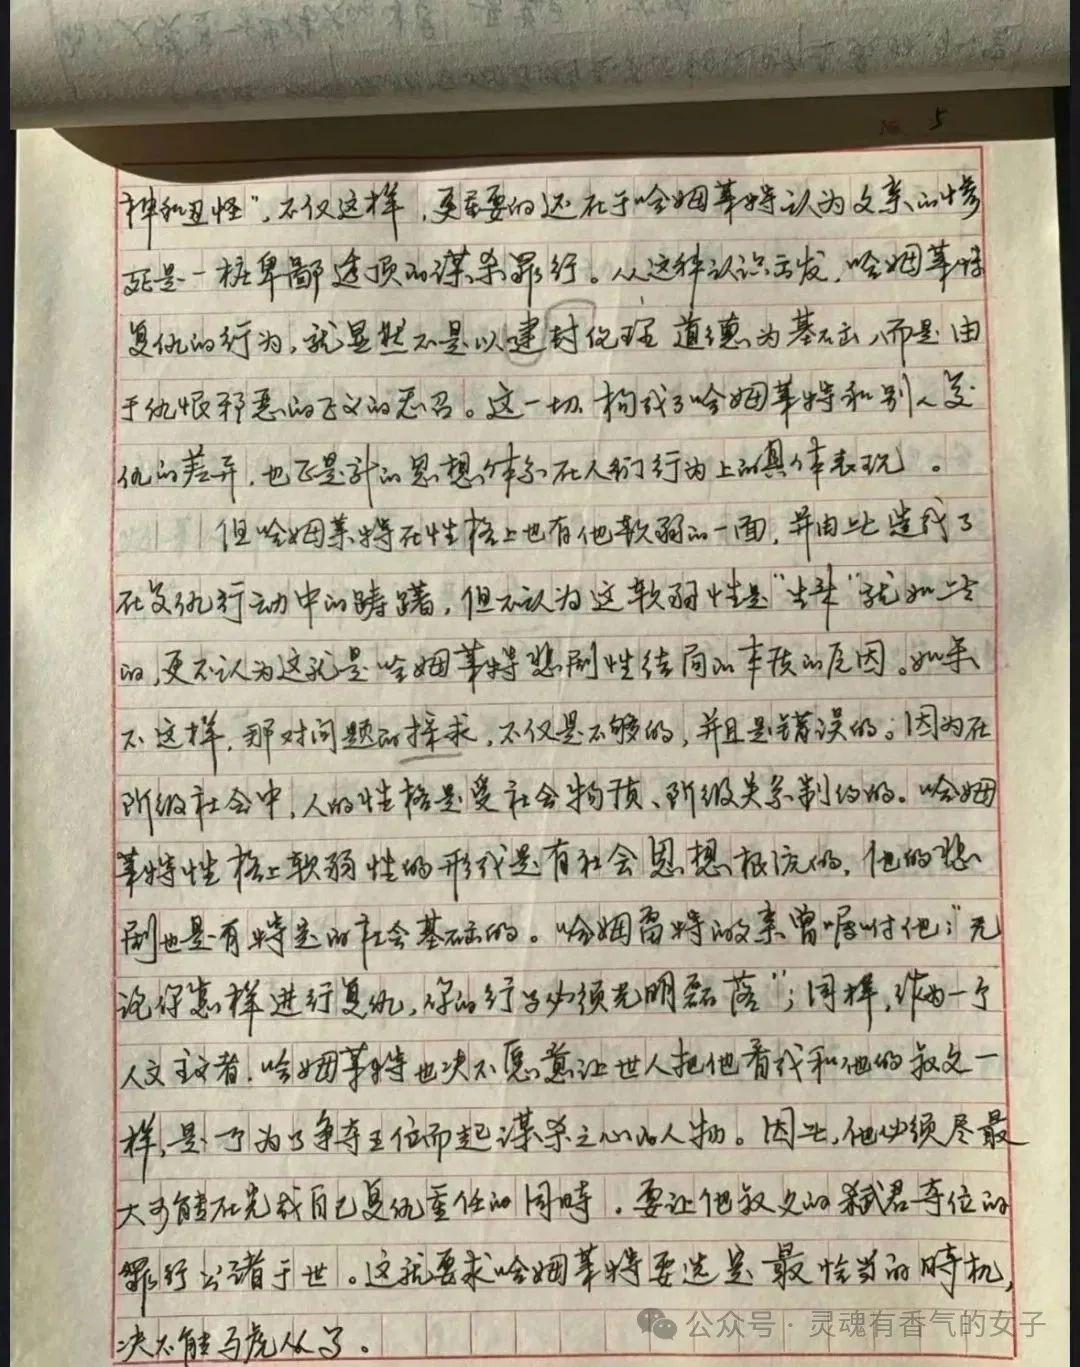 № 5
神和丑怪"，不仅这样，更重要的还在于哈姆莱特认为父亲的惨
死是一桩卑鄙透顶的谋杀罪行。从这种认识出发，哈姆莱特
复仇的行为，就显然不是以建封伦理道德为基础，而是由
于仇恨邪恶的正义的忍召。这一切构成了哈姆莱特和别人复
仇的差异，也正是新的思想体系在人们行为上的具体表现。
但哈姆莱特在性格上也有他软弱的一面，并由此造成了
在复仇行动中的踌躇，但不认为这软弱性是"生来"就如此
的，更不认为这就是哈姆莱特悲剧性结局的本质的原因。如果
不这样，那对问题的探求，不仅是不够的，并且是错误的；因为在
阶级社会中，人的性格是受社会物质、阶级关系制约的。哈姆
莱特性格上软弱性的形成是有社会思想根源的，他的悲
剧也是有特定的社会基础的。哈姆雷特的父亲曾嘱咐他："无
论你怎样进行复仇，你的行为必须光明磊落"；同样，作为一个
人文主义者，哈姆莱特也决不愿意让世人把他看成和他的叔父一
样，是一个为了争夺王位而起谋杀之心的人物。因此，他必须尽最
大可能在完成自己复仇重任的同时，要让他叔父的弑君夺位的
罪行公诸于世。这就要求哈姆莱特要选定最恰当的时机，
决不能马虎从事。
公众号 · 灵魂有香气的女子